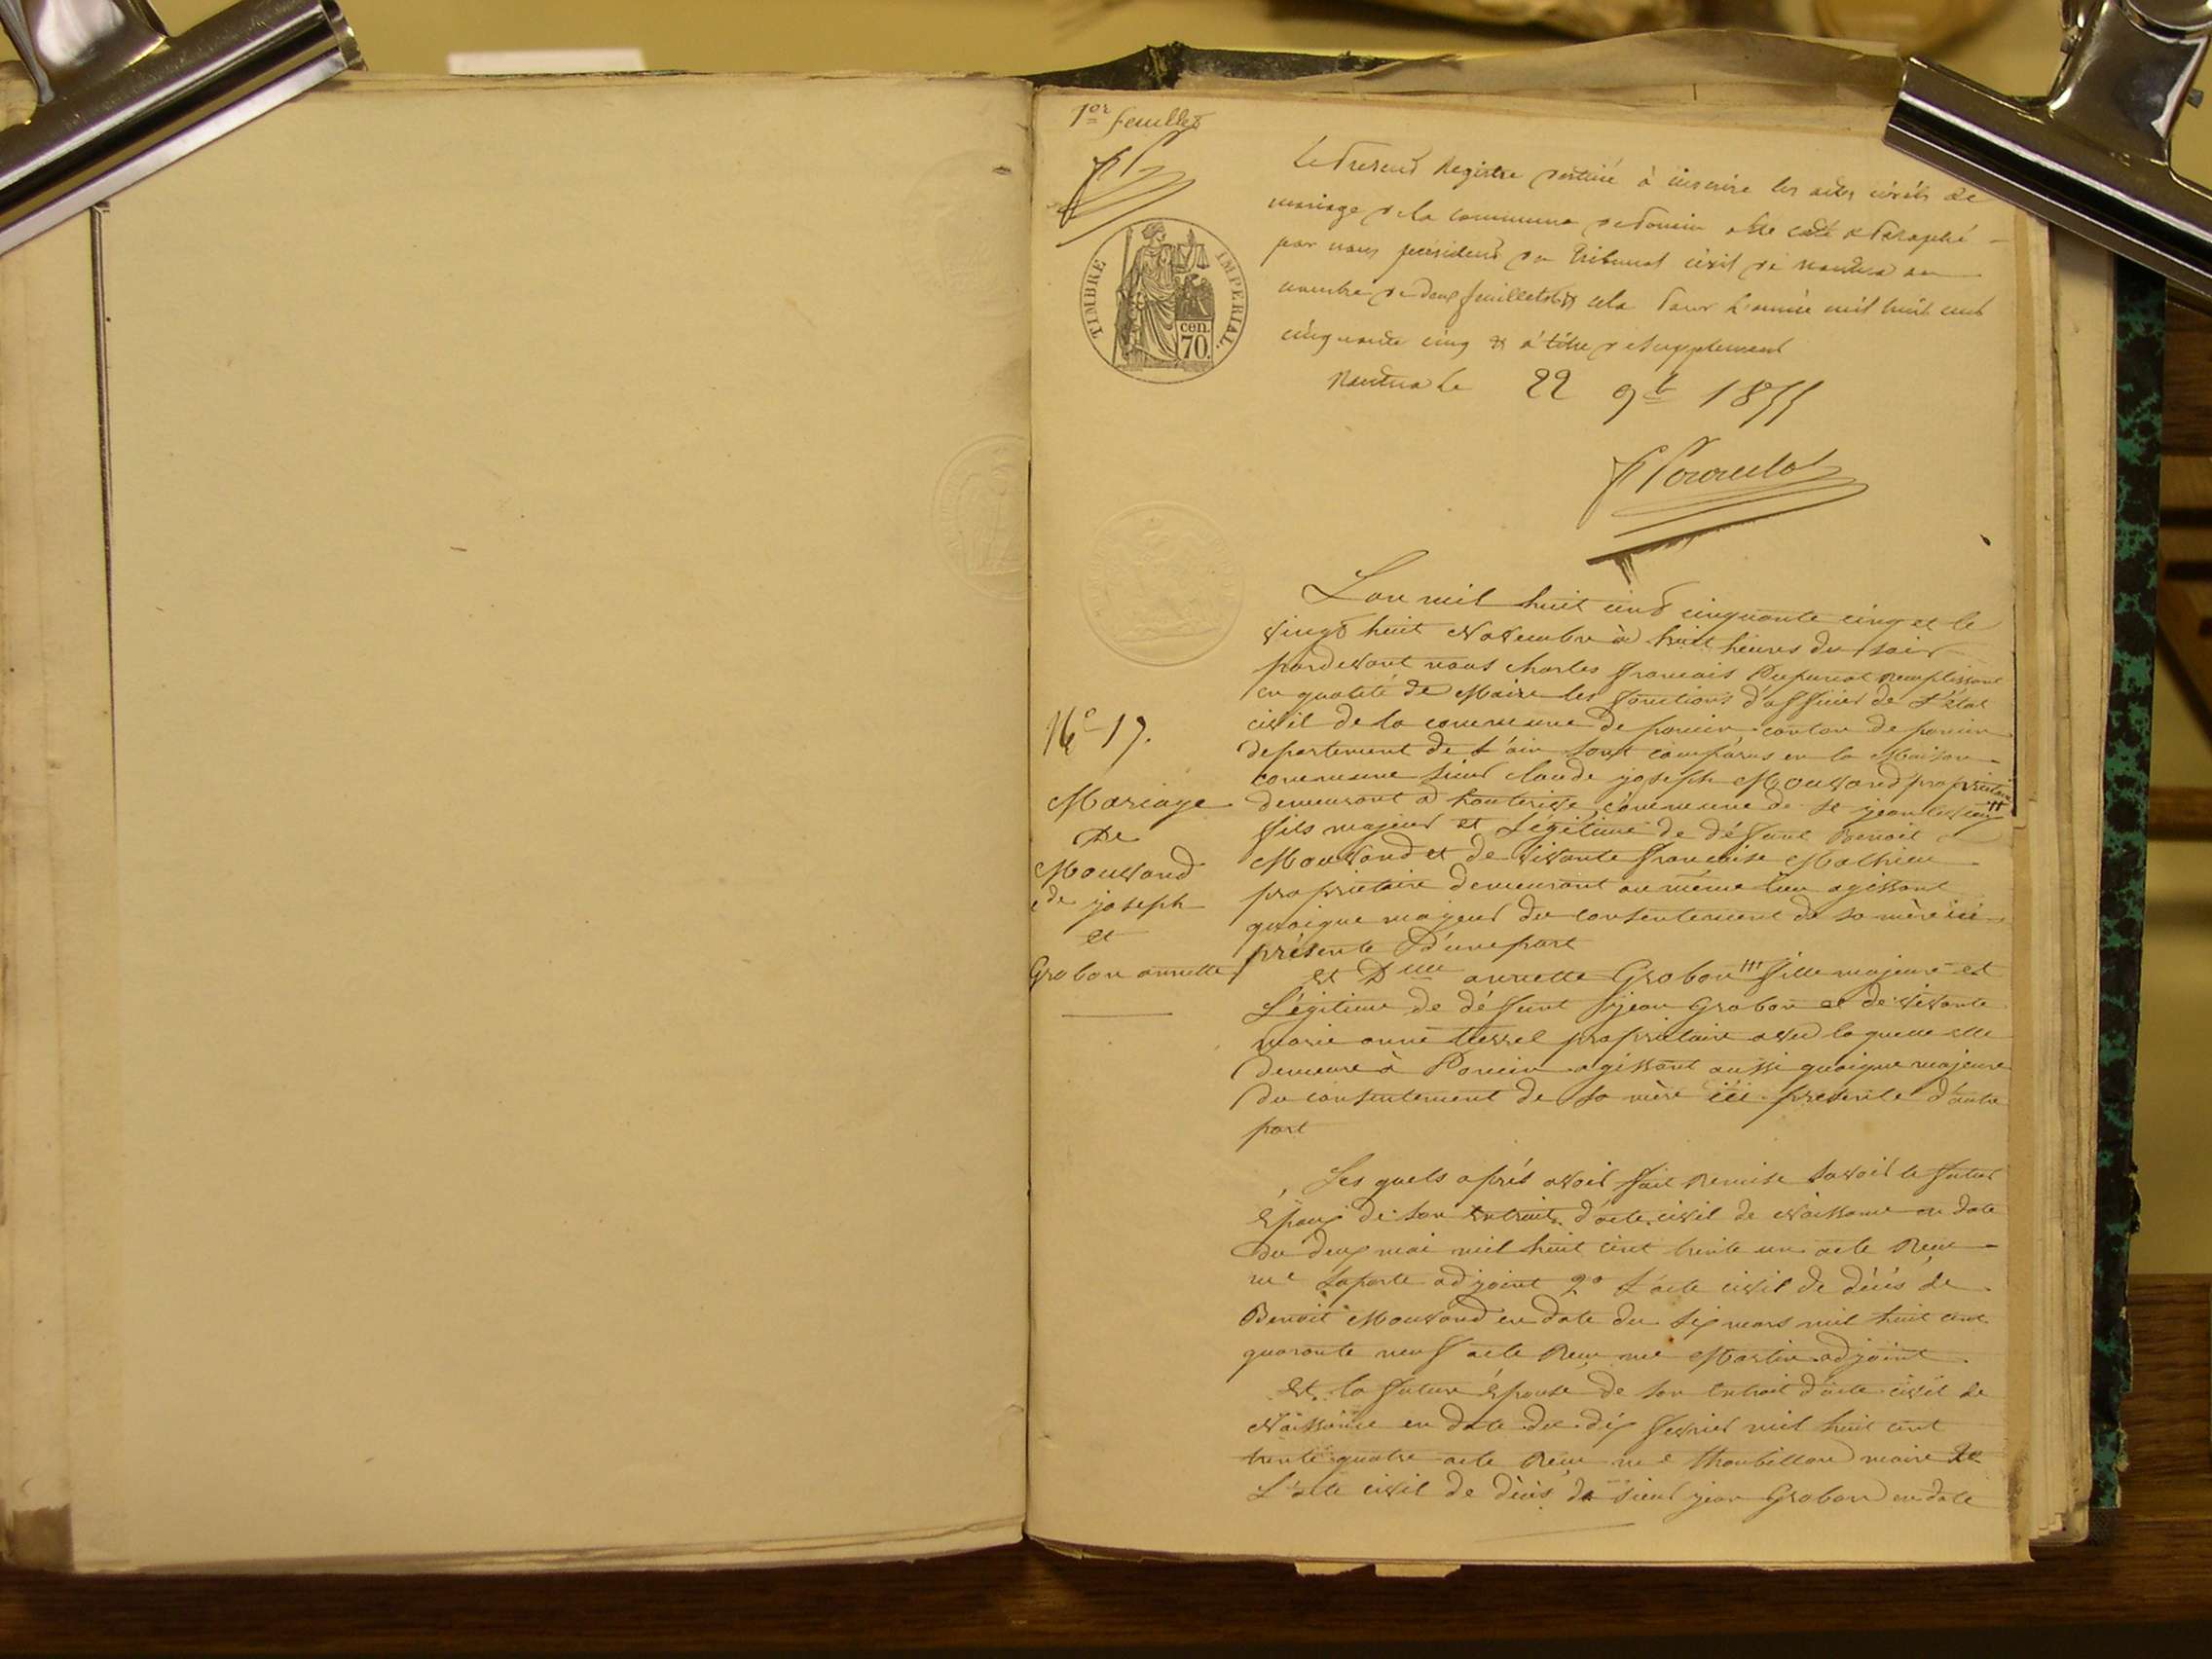 1er feuillet
TIMBRE IMPERIAL.
cen.
70.
Le Present Registre destiné à inscrire les actes civils de
mariage de la commune de Poncin a été coté & Paraphé
par nous président du Tribunal civil de Nantua au
nombre de deux feuillets & cela Pour l'année mil huit cent
cinquante cinq & à titre de supplement
Nantua le 22 9b 1855
L'an mil huit cent cinquante cinq et le
vingt huit Novembre à huit heures du soir
pardevant nous charles francois remplissant
en qualité de Maire les fonctions d'officier de l'état
civil de la commune de poncin canton de poncin
departement de l'ain sont comparus en la Maison
commune sieur claude joseph Mouvand propriétaire
demeurant à hauterive commune de st jean le vieux
fils majeur et Légitime de défunt Benoit
Mouvand et de vivante francoise Mathieu
propriétaire demeurant au même lieu agissant
quoique majeur du consentement de sa mère ici
présente D'une part
N° 17.
Mariage
De
Mouvand
cde joseph
et
Grobon annette
et Dlle annette Grobon fille majeure et
Légitime de défunt jean Grobon et de vivante
marie anne propriétaire avec laquelle elle
demeure à Poncin agissant aussi quoique majeure
du consentement de sa mère ici présente d'autre
part
Les quels après avoir fait remise savoir le futur
Epoux de son Extrait d'acte civil de Naissance en date
du deux mai mil huit cent trente un acte Reçu
me Laporte adjoint 2° L'acte civil de décès de
Benoit Mouvand en date du six mars mil huit cent
quarante neuf acte Reçu me Martin adjoint
Et la future épouse de son Extrait d'acte civil de
Naissance en date du dix fevrier mil huit cent
trente quatre acte Reçu me Thoubillon maire 2e
L'acte civil de décès de sieur jean Grobon en date